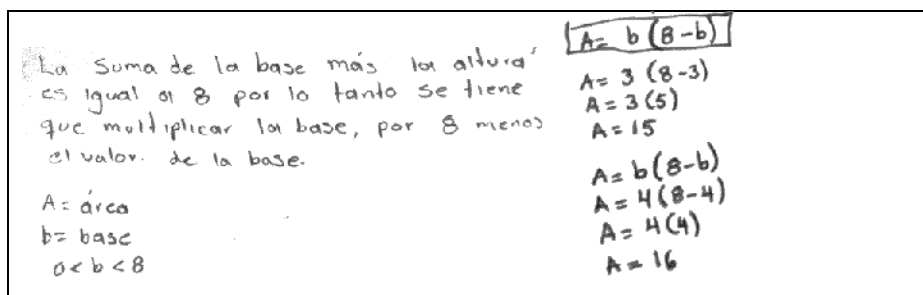 La suma de la base más la altura
es igual a 8 por lo tanto se tiene
que multiplicar la base, por 8 menos
el valor. de la base.
A = área
b = base
0 < b < 8
A = b (8-b)
A = 3 (8-3)
A = 3 (5)
A = 15
A = b(8-b)
A = 4(8-4)
A = 4(4)
A = 16